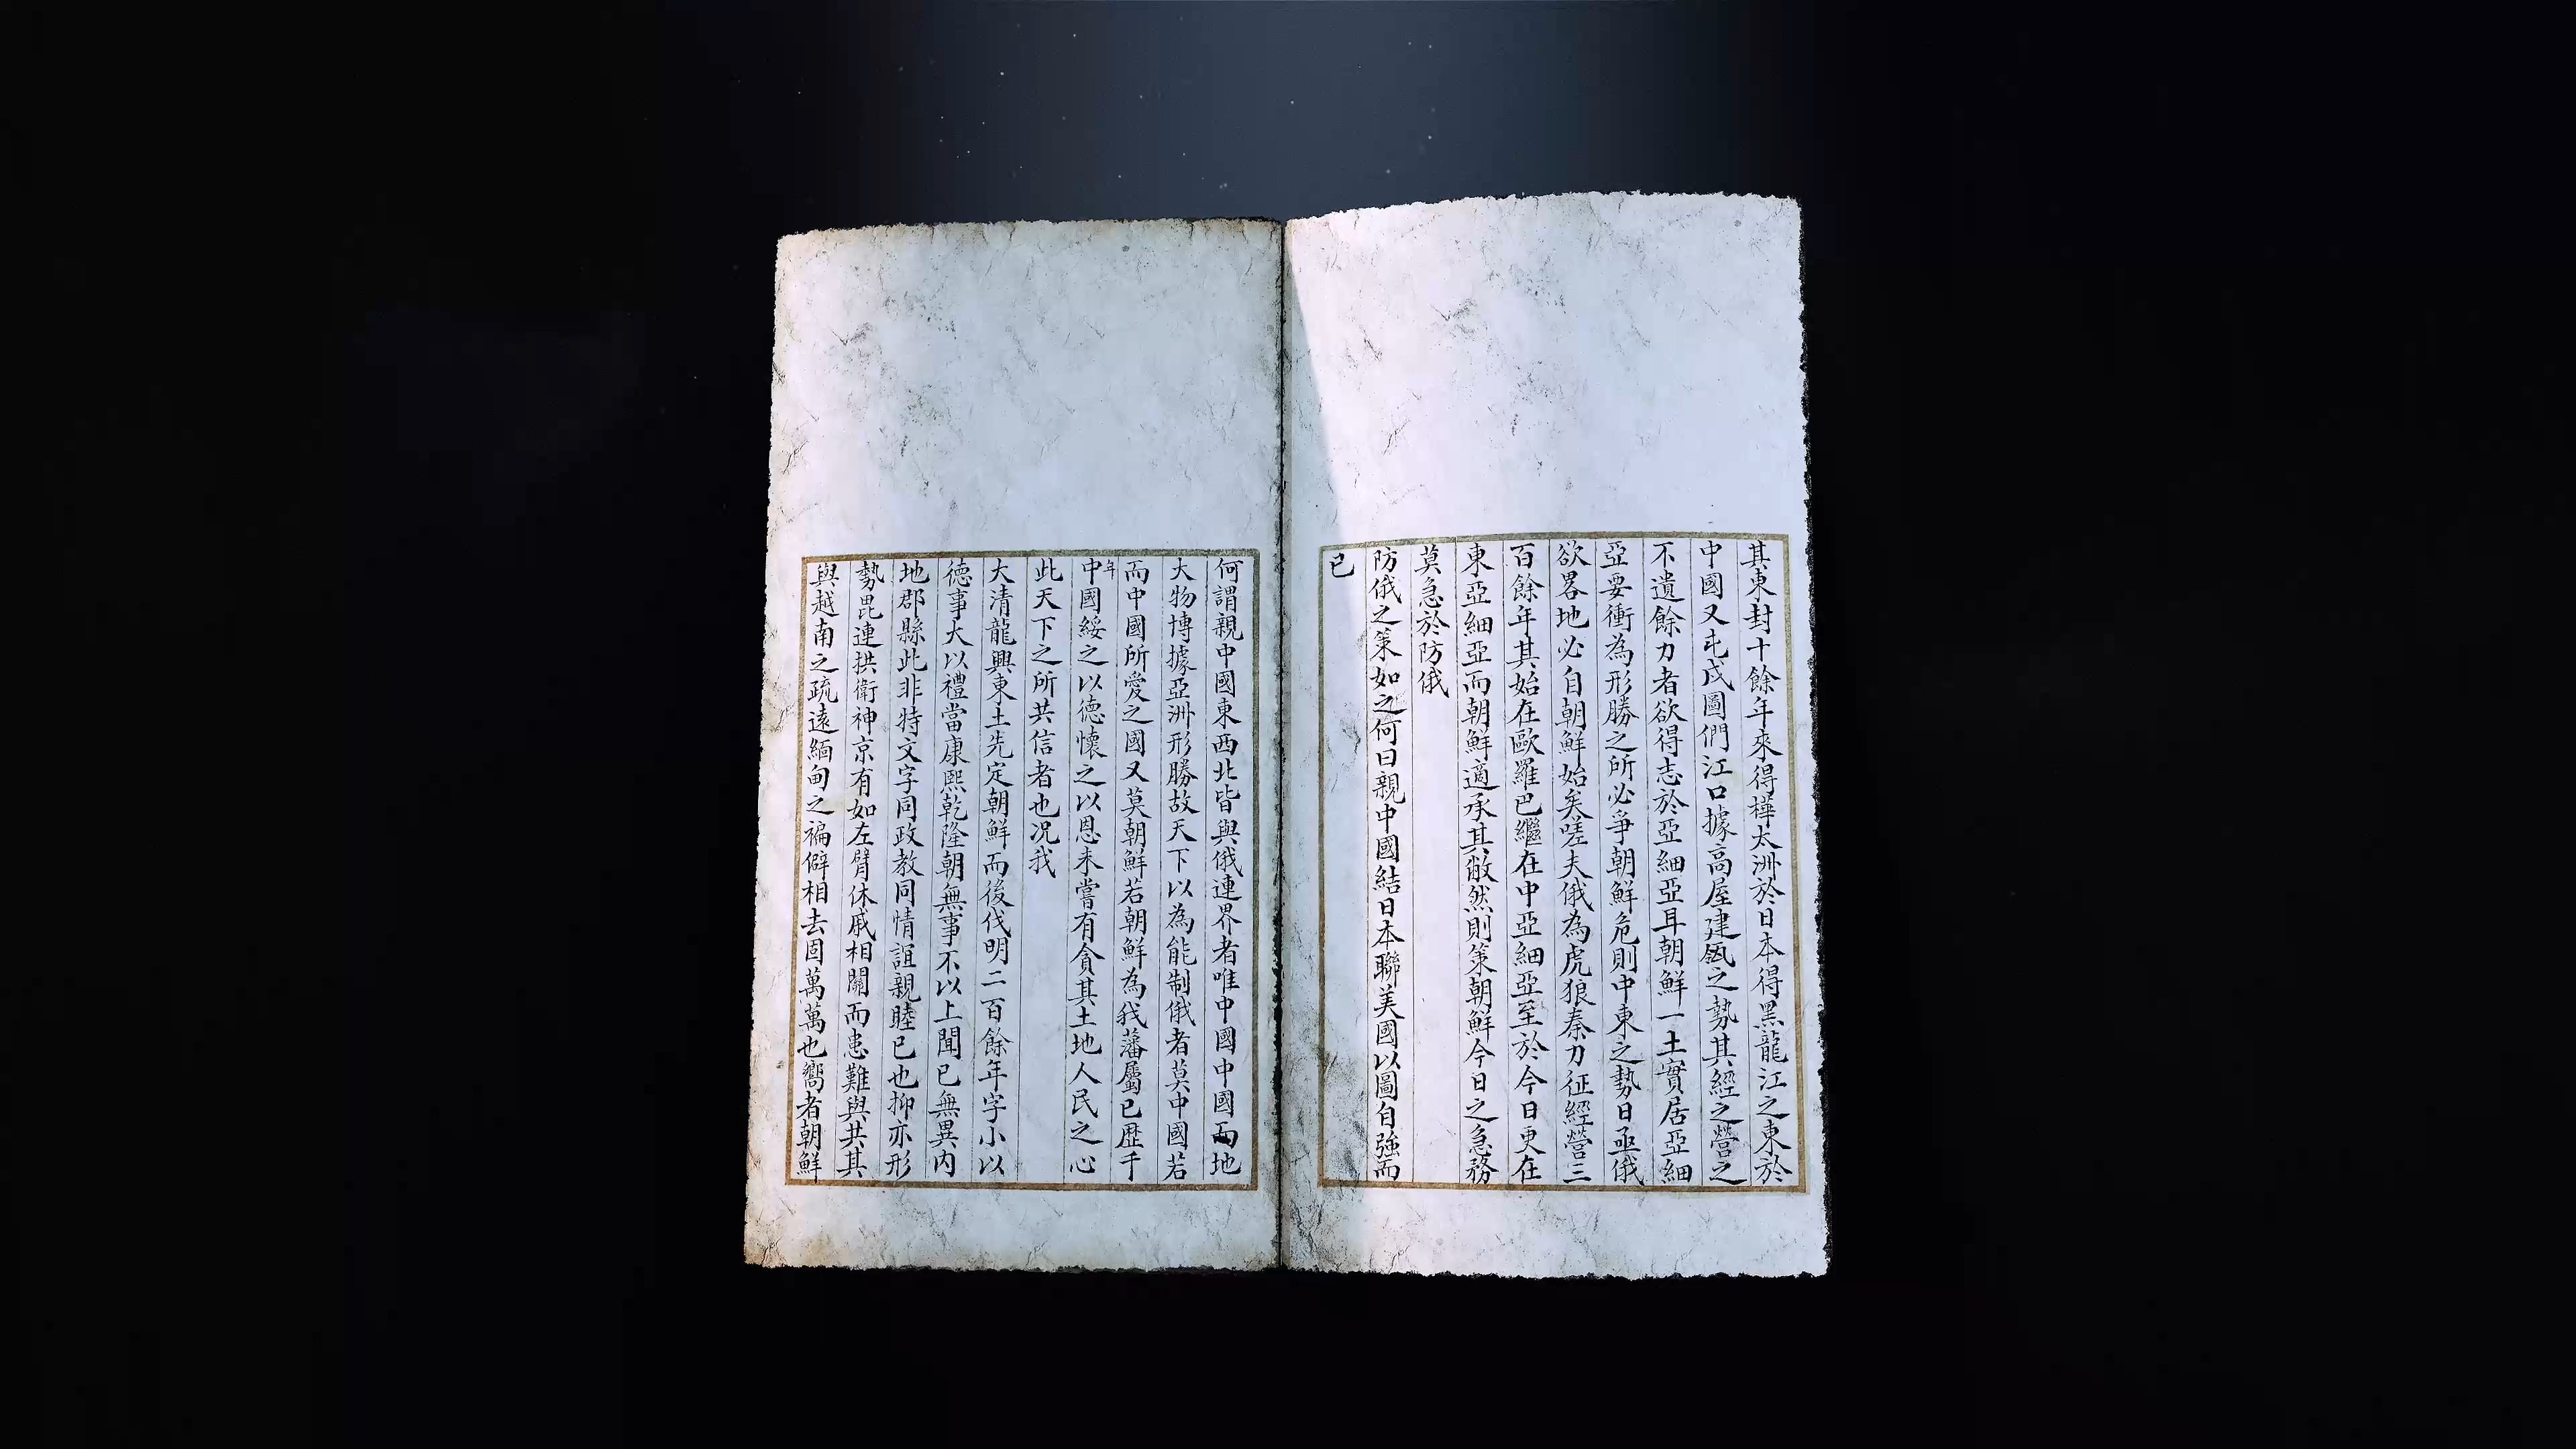 其東封十餘年來得樺太洲於日本得黑龍江之東於
中國又屯戍圖們江口據高屋建瓴之勢其經之營之
不遺餘力者欲得志於亞細亞耳朝鮮一土實居亞細
亞要衝為形勝之所必爭朝鮮危則中東之勢日亟俄
欲畧地必自朝鮮始矣嗟夫俄為虎狼秦力征經營三
百餘年其始在歐羅巴繼在中亞細亞至於今日更在
東亞細亞而朝鮮適承其敝然則策朝鮮今日之急務
莫急於防俄
防俄之策如之何曰親中國結日本聯美國以圖自強而
已
何謂親中國東西北皆與俄連界者唯中國中國而地
大物博據亞洲形勝故天下以為能制俄者莫中國若
而中國所愛之國又莫朝鮮若朝鮮為我藩屬已歷千
年
中國綏之以德懷之以恩未嘗有貪其土地人民之心
此天下之所共信者也况我
大清龍興東土先定朝鮮而後伐明二百餘年字小以
德事大以禮當康熙乾隆朝無事不以上聞已無異内
地郡縣此非特文字同政教同情誼親睦已也抑亦形
勢毘連拱衛神京有如左臂休戚相關而患難與共其
與越南之疏遠緬甸之褊僻相去固萬萬也嚮者朝鮮